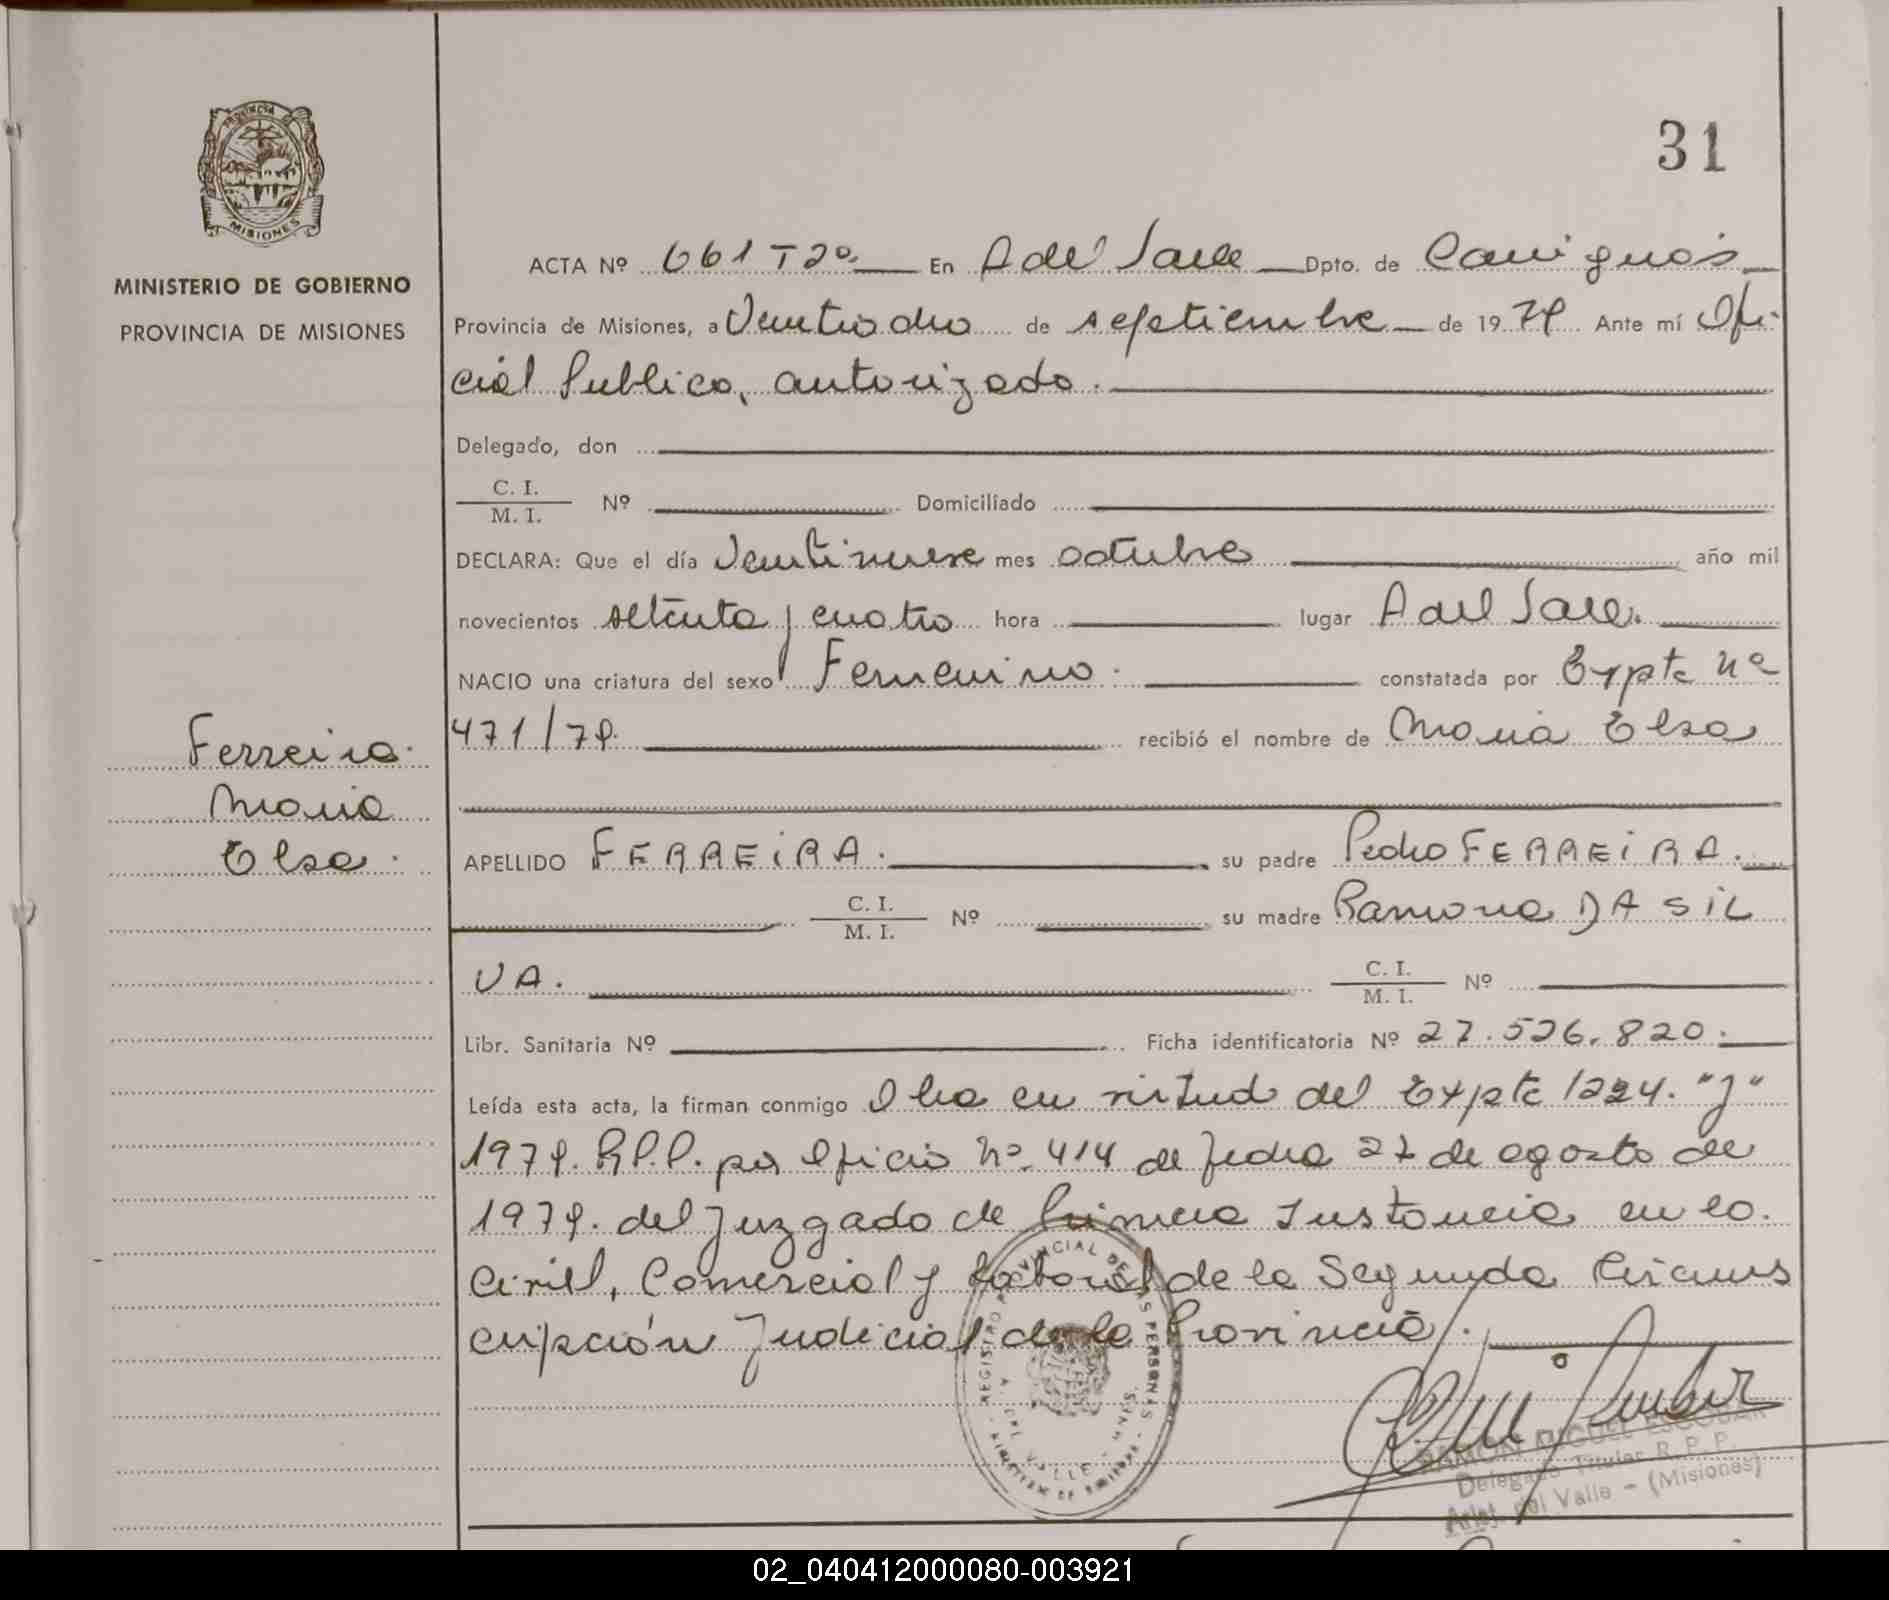 PROVINCIA
MISIONES
MINISTERIO DE GOBIERNO
PROVINCIA DE MISIONES
31
ACTA Nº 661 T 2º En A del Valle Dpto. de Cainguás
Provincia de Misiones, a Ventiocho de septiembre de 1979 Ante mí Ofi-
cial Publico, autorizado.
Delegado, don
C. I.
M. I. Nº Domiciliado
DECLARA: Que el día Ventinueve mes octubre año mil
novecientos setenta y cuatro hora lugar A del Valle.
NACIO una criatura del sexo Femenino. constatada por Expte Nº
471/79. recibió el nombre de Maria Elsa
Ferreira.
Maria
Elsa.
APELLIDO FERREIRA. su padre Pedro FERREIRA.
C. I.
M. I. Nº su madre Ramona DA SIL
VA. C. I.
M. I. Nº
Libr. Sanitaria Nº Ficha identificatoria Nº 27.526.820.
Leída esta acta, la firman conmigo en virtud del Expte 1224. "J"
1979. R.P.P. por Oficio Nº 414 de fecha 27 de agosto de
1979. del Juzgado de Primera Instancia en lo
Civil, Comercial y de la Segunda Circuns
cripción Judicial de la Provincia.
REGISTRO PROVINCIAL DE LAS PERSONAS
A. DEL VALLE - MNES.
RAMON MIGUEL ESCOBAR
Delegado Titular R. P. P.
Arist. del Valle - (Misiones)
02_040412000080-003921